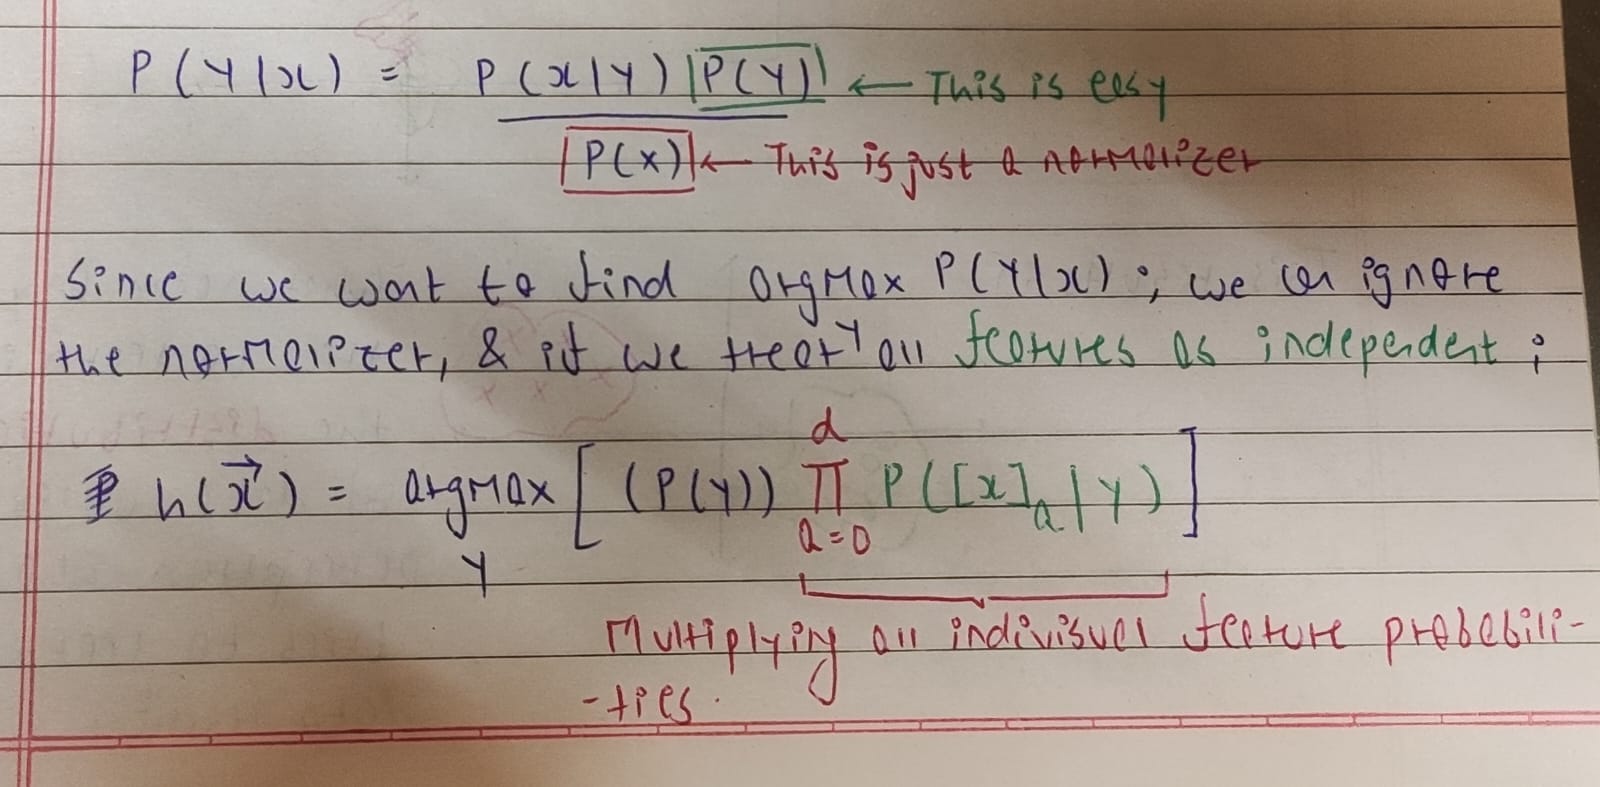 P(Y|x) = P(x|Y) P(Y) ← This is easy
P(x) ← This is just a normalizer
Since we want to find argmax P(Y|x); we can ignore
Y
the normalizer, & if we treat all features as independent;
h(x⃗) = argmax [ (P(Y)) d Π a=0 P([x]a|Y) ]
Y
Multiplying all indivisual feature probebili-
-ties.